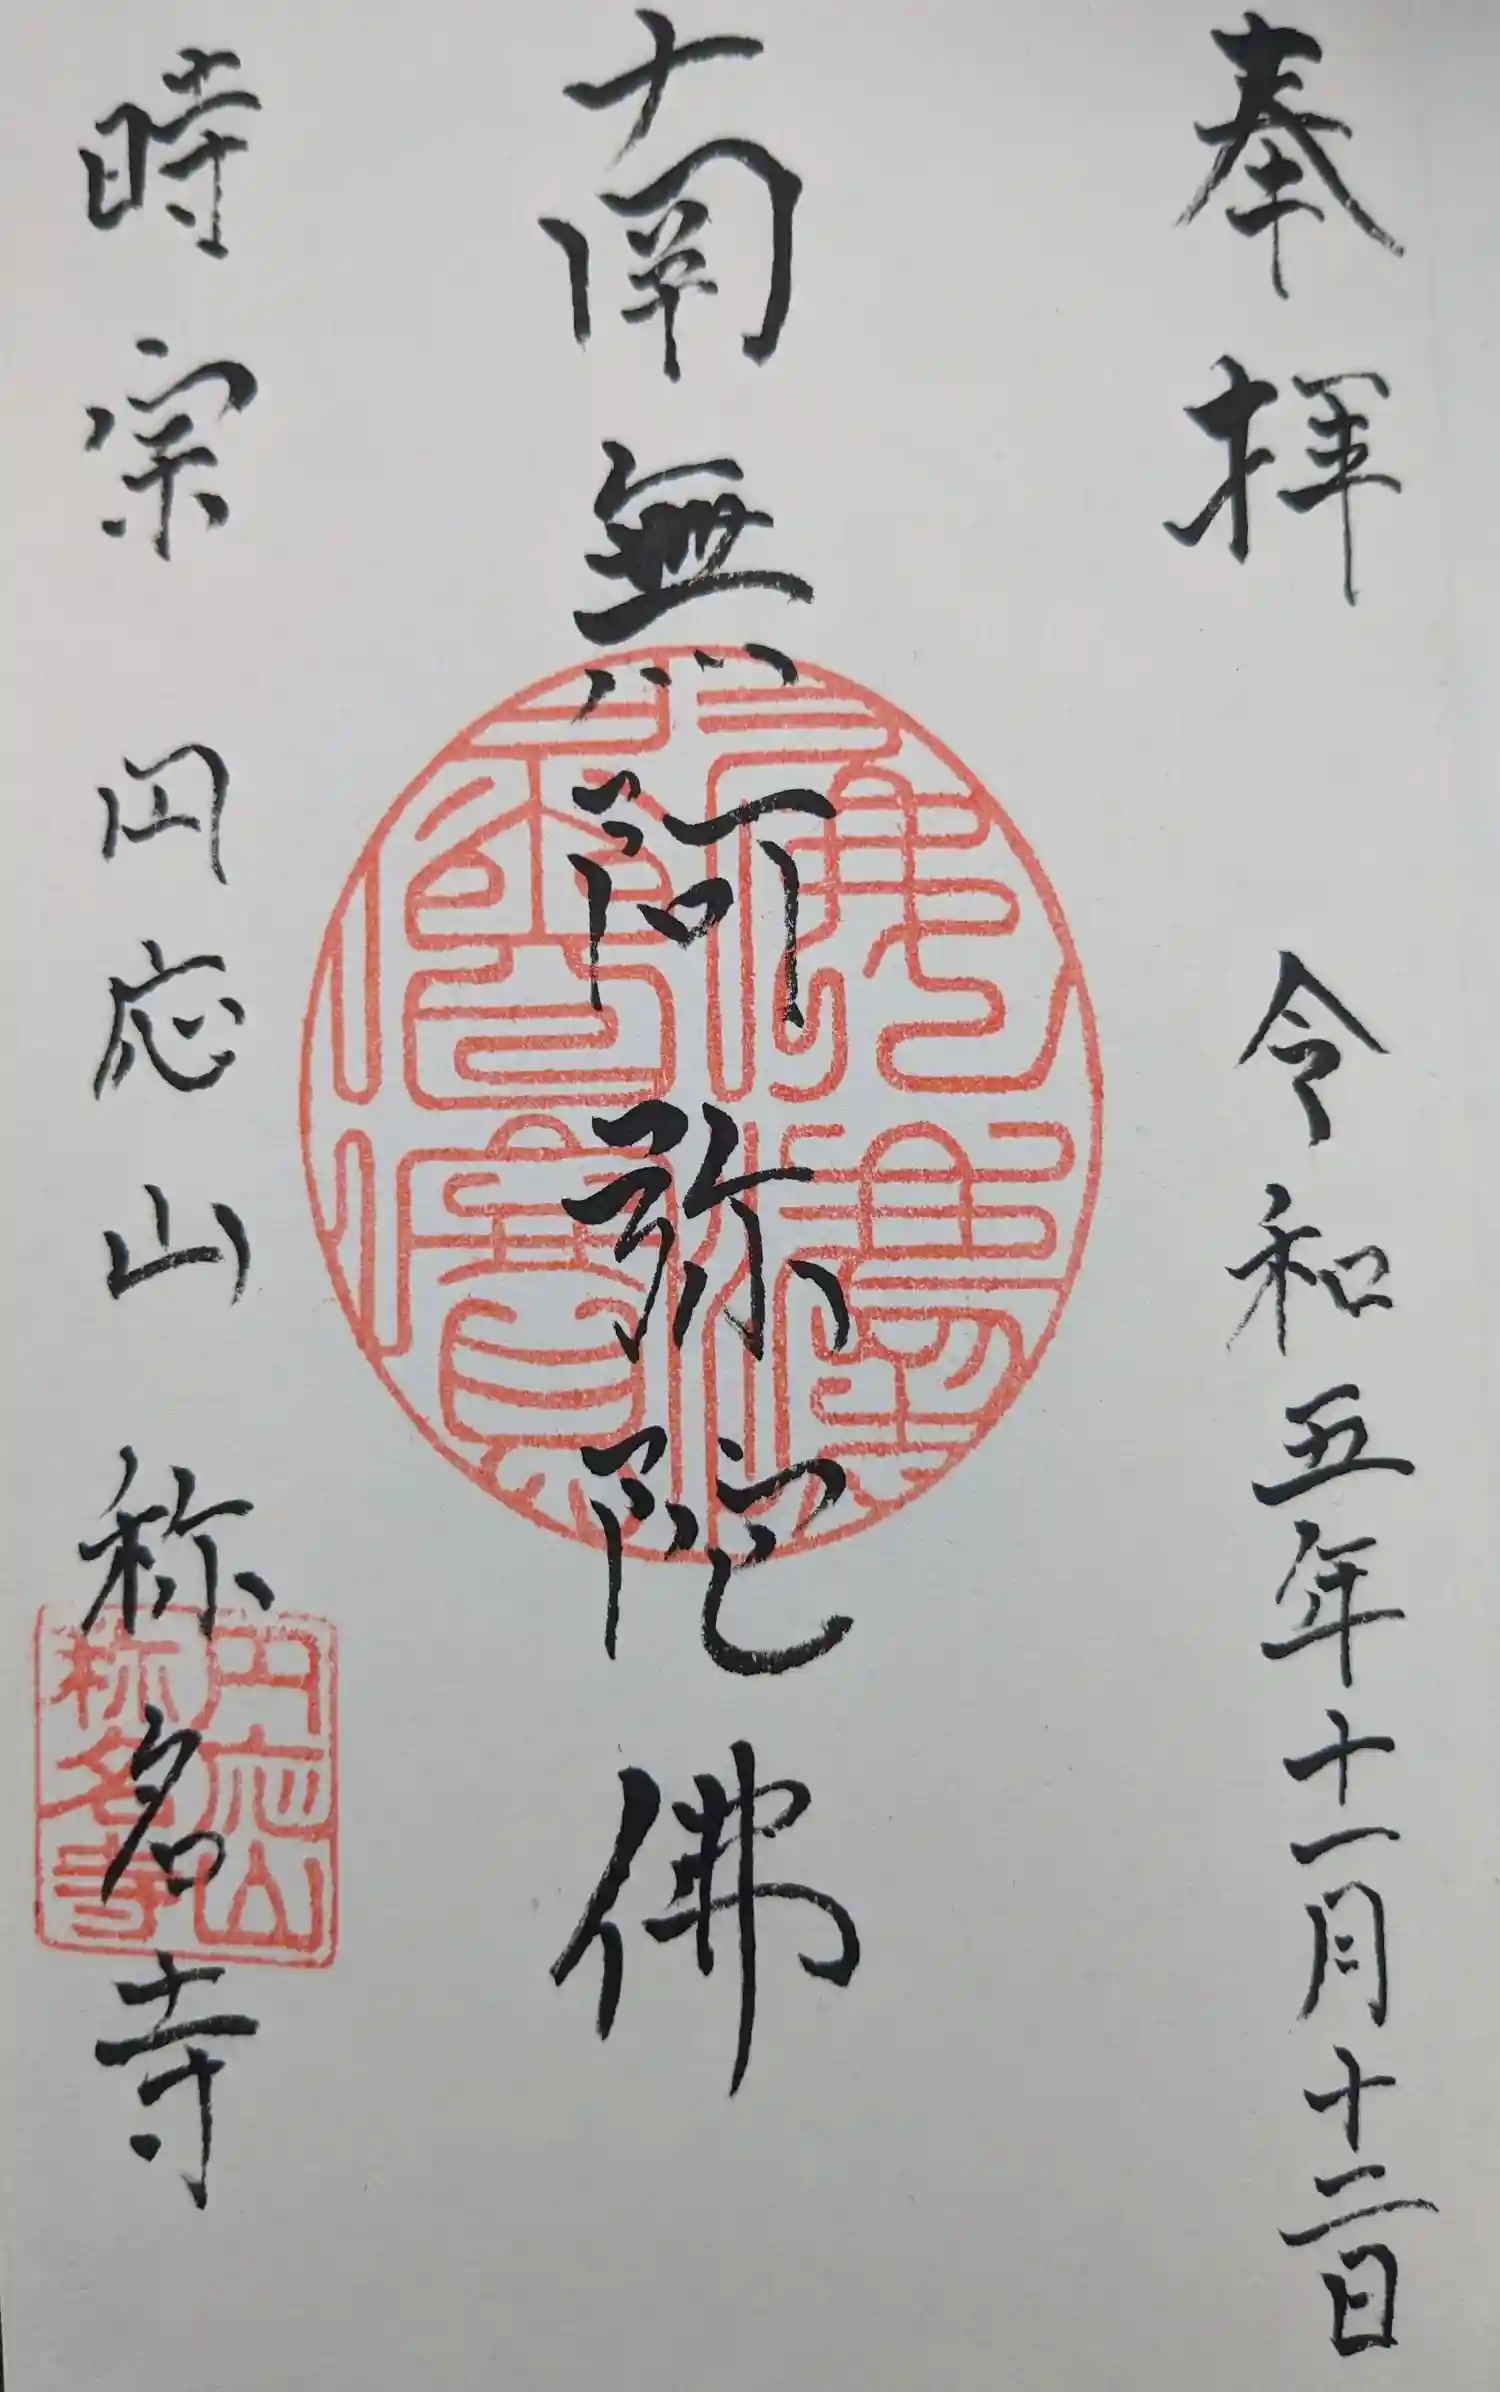 奉拝 令和五年十一月十二日
南無阿弥陀佛
時宗 円応山 称名寺
円応山
称名寺